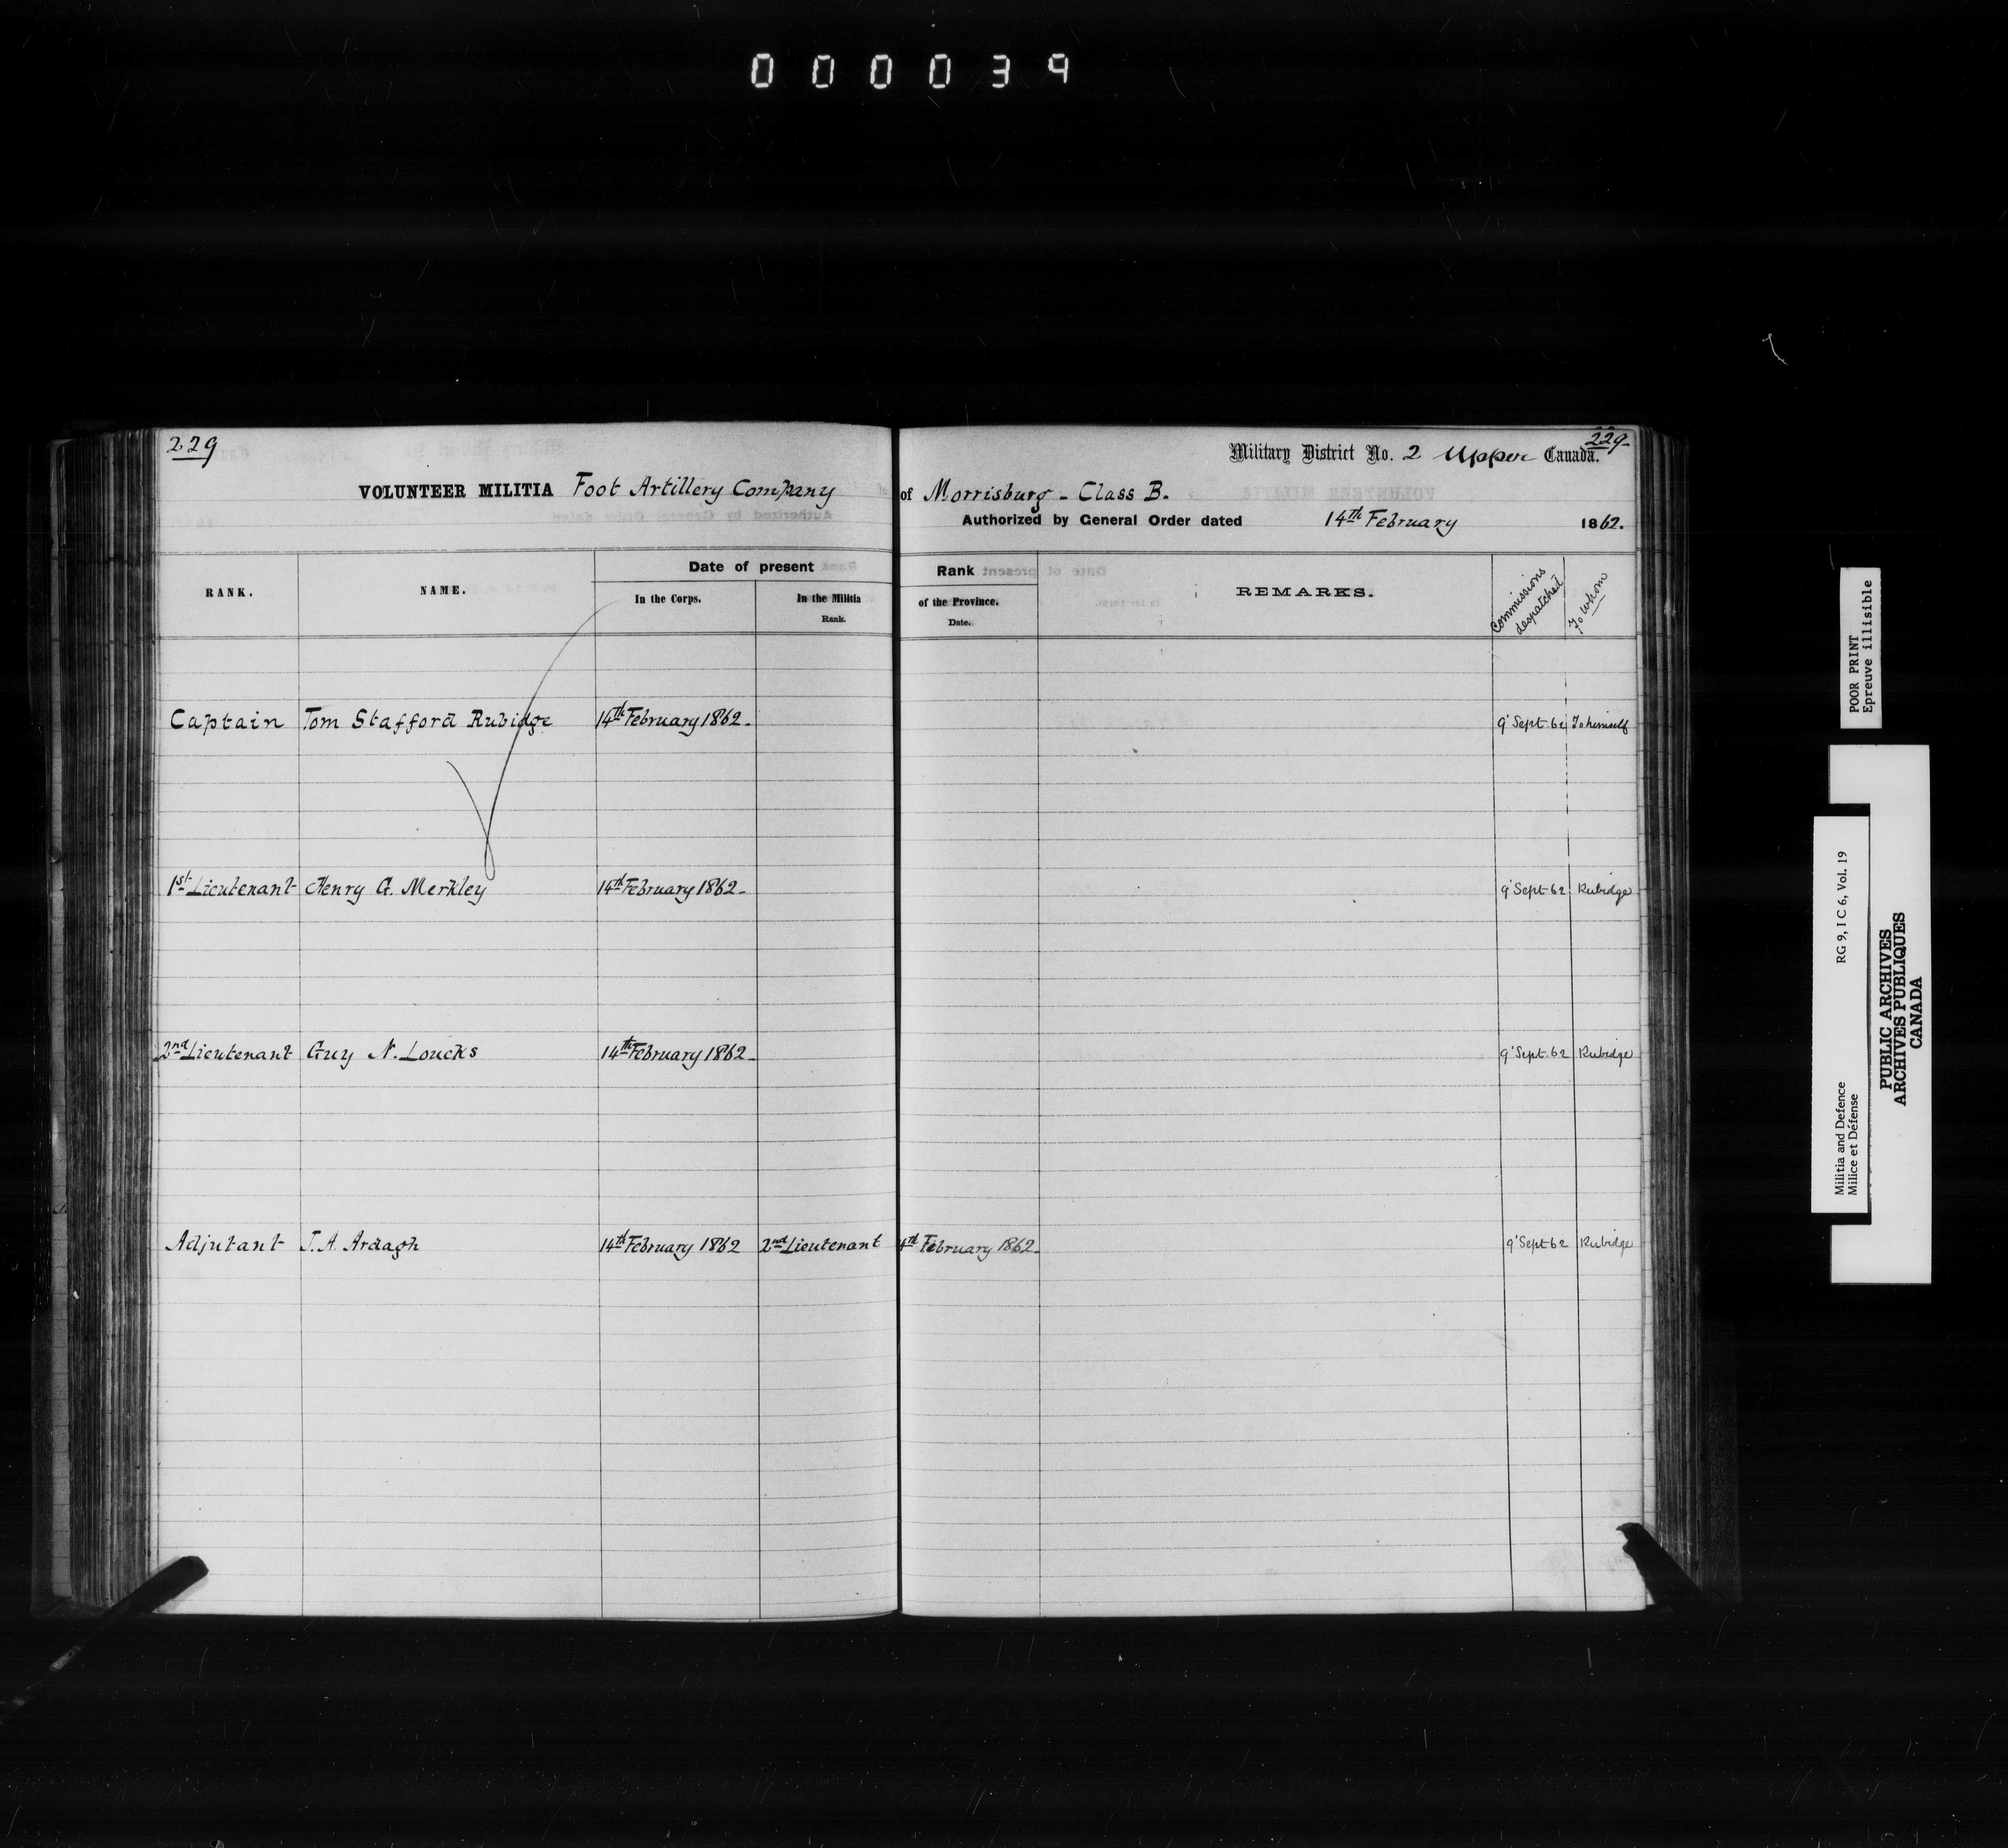 000039
229
229-
Military District No. 2 Upper Canada.
VOLUNTEER MILITIA Foot Artillery Company of Morrisburg - Class B.
Authorized by General Order dated 14th February 1862.
RANK. NAME. Date of present Rank REMARKS. Commissions despatched To whom
In the Corps. In the Militia of the Province.
Rank. Date.
Captain Tom Stafford Rubidge 14th February 1862. 9' Sept. 62 To himself
1st Lieutenant Henry G. Merkley 14th February 1862- 9' Sept 62 Rubidge
2nd Lieutenant Guy N. Loucks 14th February 1862- 9' Sept. 62 Rubidge
Adjutant J. A. Ardagh 14th February 1862 2nd Lieutenant February 1862- 9' Sept 62 Rubidge
POOR PRINT
Epreuve illisible
Militia and Defence RG 9, I C 6, Vol. 19
Milice et Défense
PUBLIC ARCHIVES
ARCHIVES PUBLIQUES
CANADA